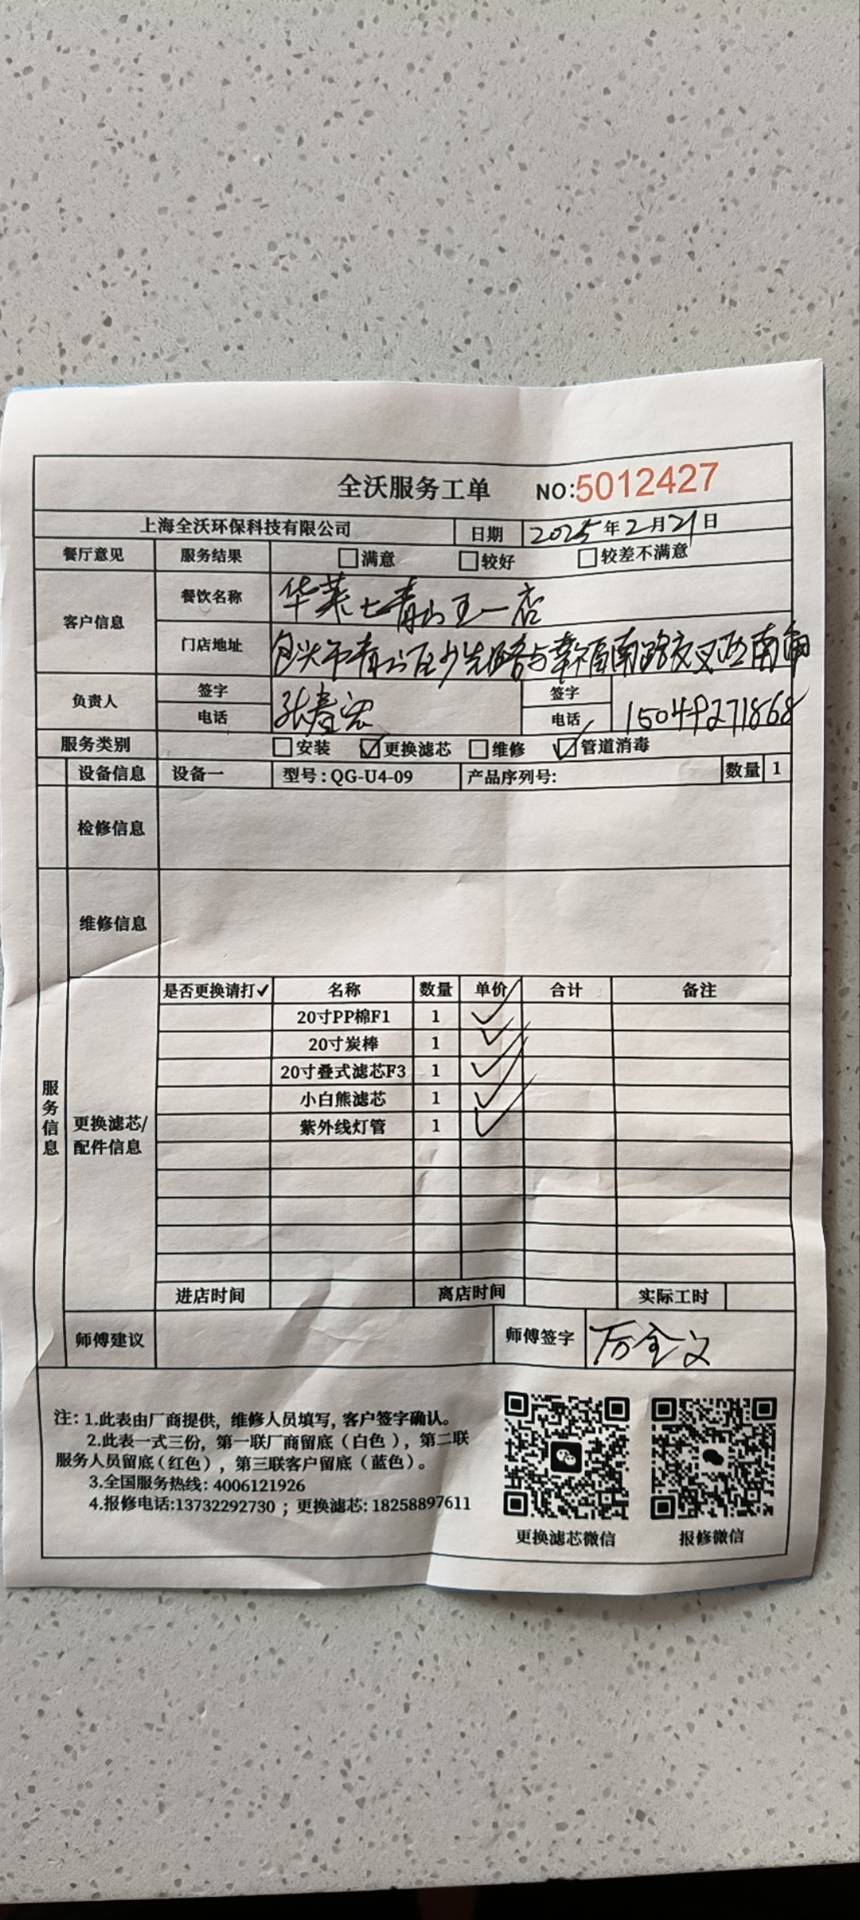 全沃服务工单 NO:5012427
上海全沃环保科技有限公司 日期 2025年2月21日
餐厅意见 服务结果 满意 较好 较差不满意
客户信息 餐饮名称 华莱士青山王一店
门店地址 包头市青山区少先路与幸福南路交叉西南
负责人 签字 张春 签字
电话 电话 15049271868
服务类别 安装 ✓更换滤芯 维修 ✓管道消毒
设备信息 设备一 型号:QG-U4-09 产品序列号: 数量 1
检修信息
维修信息
服务信息
更换滤芯/配件信息
是否更换请打✓ 名称 数量 单价 合计 备注
20寸PP棉F1 1 ✓
20寸炭棒 1 ✓
20寸叠式滤芯F3 1 ✓
小白熊滤芯 1 ✓
紫外线灯管 1 ✓
进店时间 离店时间 实际工时
师傅建议 师傅签字 万全文
注: 1.此表由厂商提供, 维修人员填写, 客户签字确认。
2.此表一式三份, 第一联厂商留底(白色), 第二联
服务人员留底(红色), 第三联客户留底(蓝色)。
3.全国服务热线: 4006121926
4.报修电话:13732292730 ; 更换滤芯: 18258897611
更换滤芯微信 报修微信